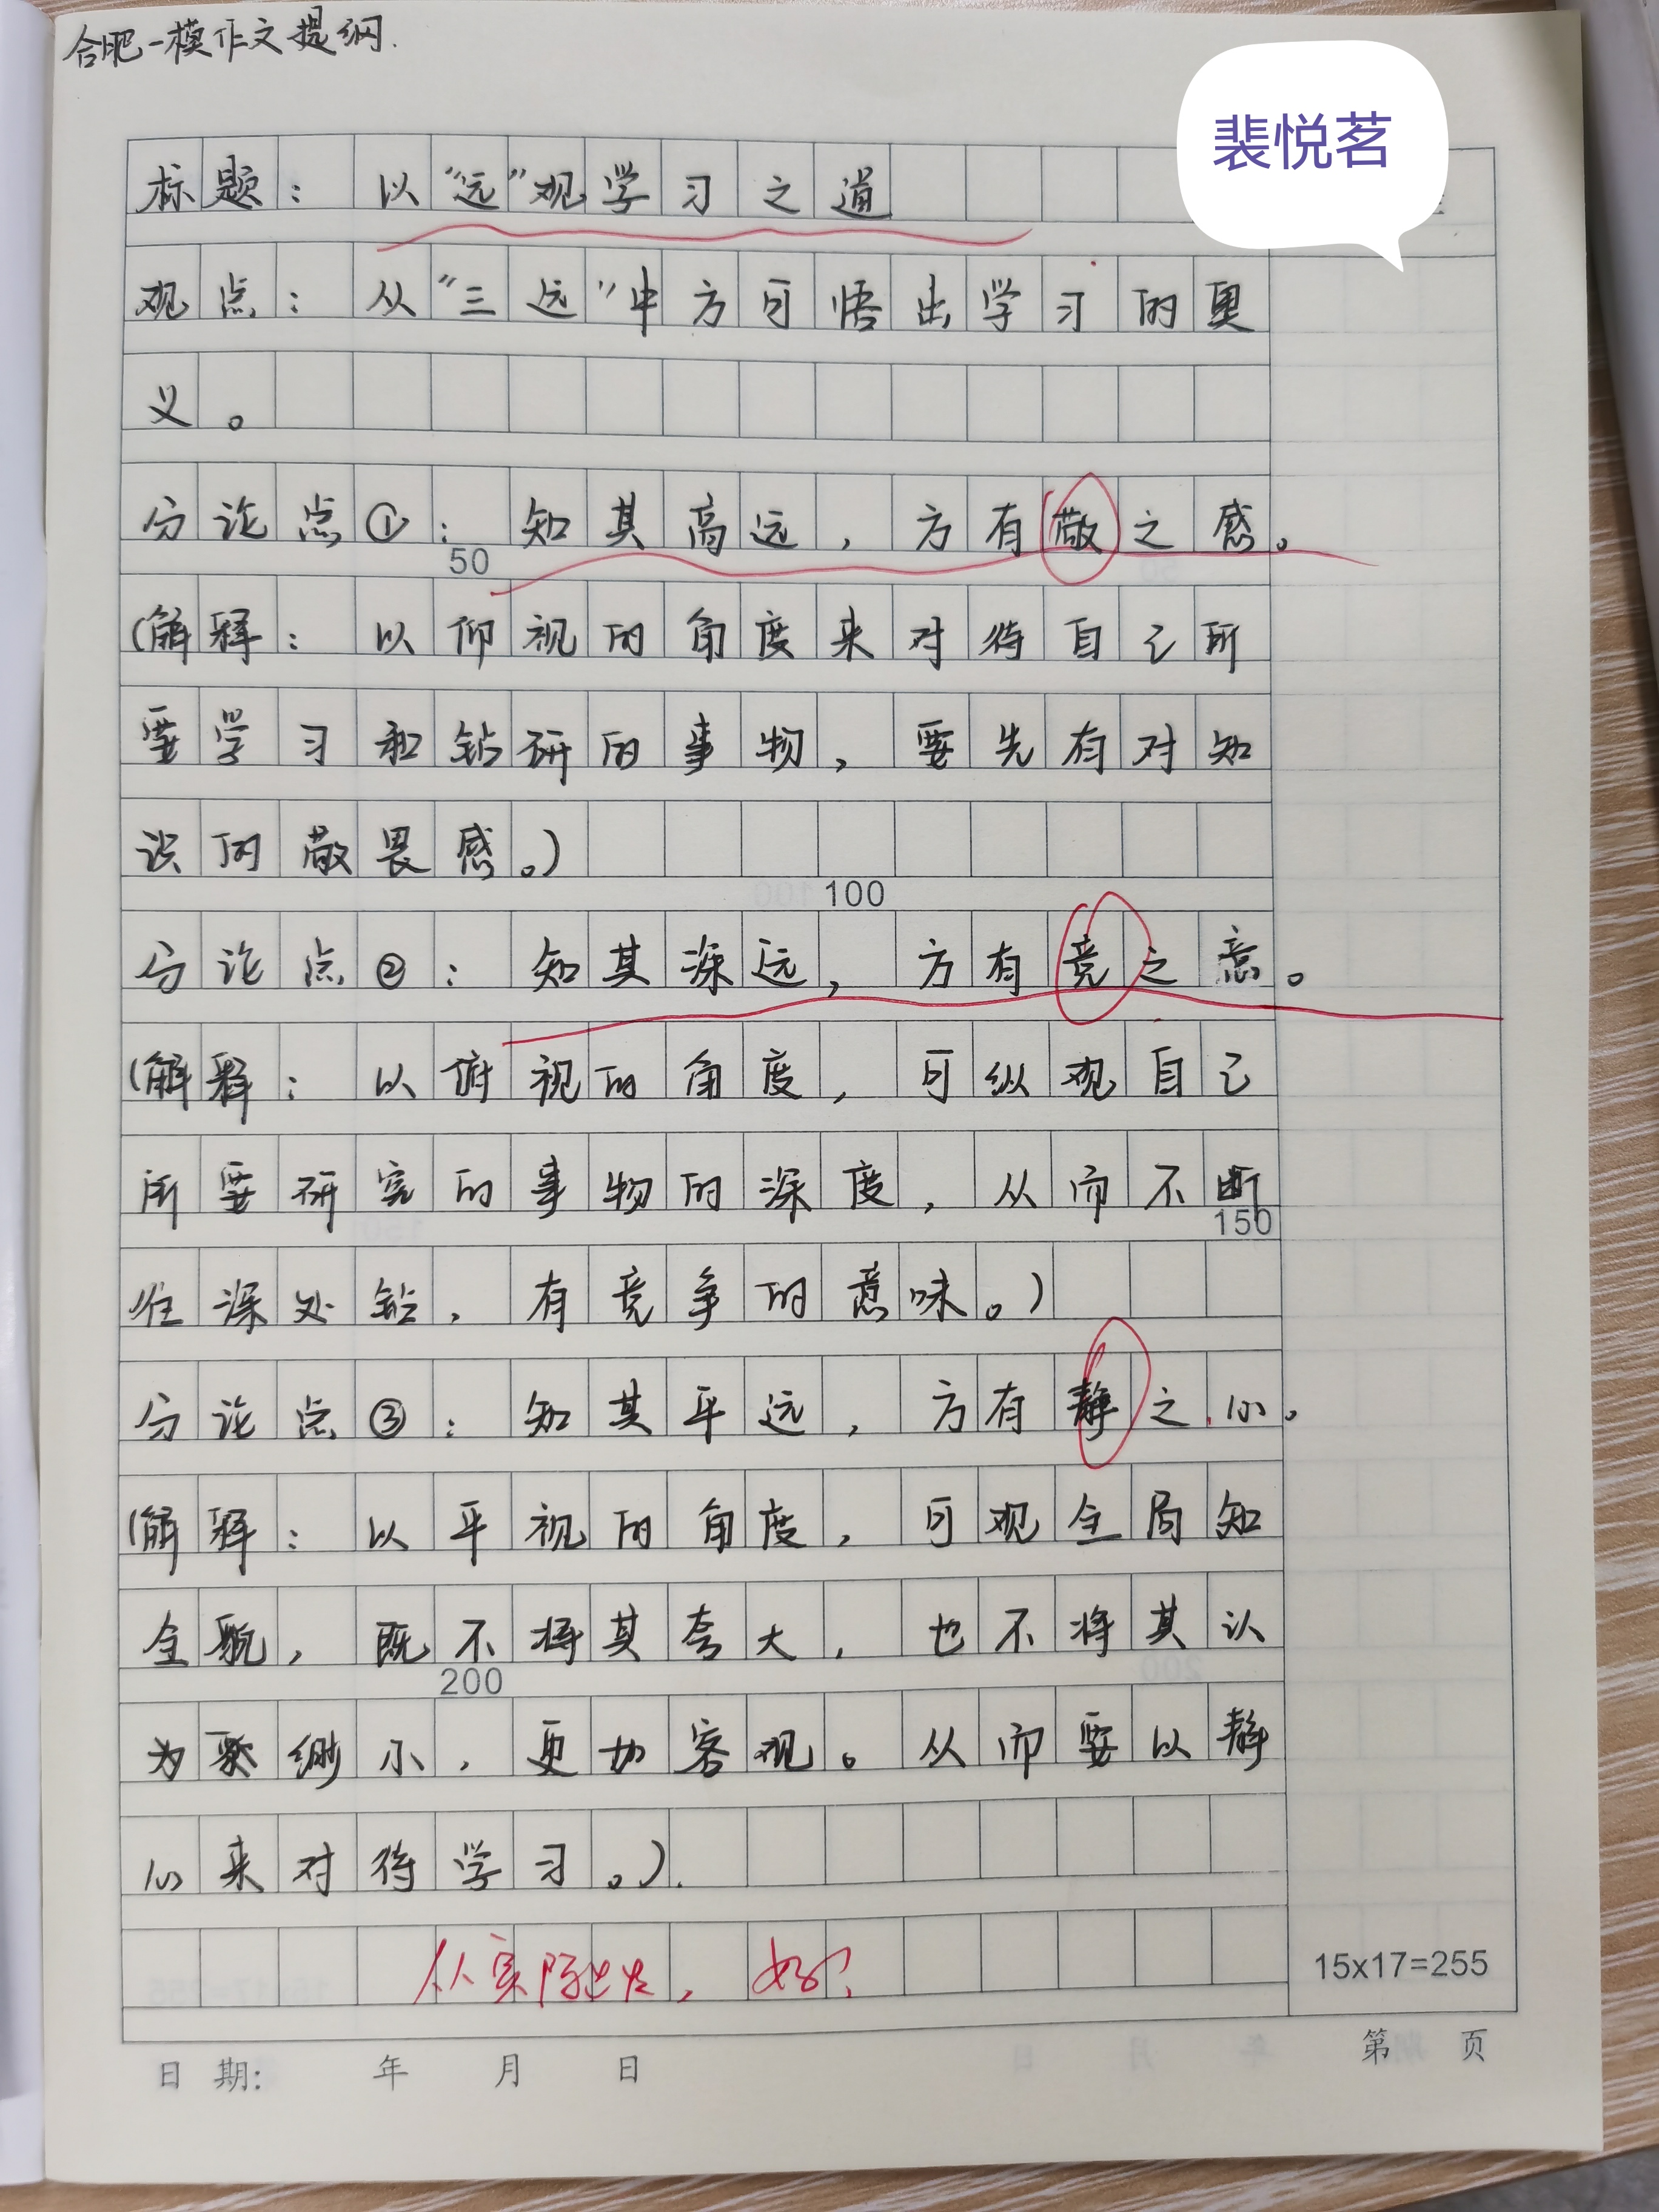 合肥一模作文提纲.
裴悦茗
标题：以“远”观学习之道
观点：从“三远”中方可悟出学习的奥
义。
分论点①：知其高远，方有敬之感。
50
(解释：以仰视的角度来对待自己所
要学习和钻研的事物，要先有对知
识的敬畏感。)
100
分论点②：知其深远，方有竞之意。
(解释：以俯视的角度，可纵观自己
所要研究的事物的深度，从而不断
150
往深处钻，有竞争的意味。)
分论点③：知其平远，方有静之心。
(解释：以平视的角度，可观全局知
全貌，既不将其夸大，也不将其认
200
为缈小，更加客观。从而要以静
心来对待学习。).
从实际出发，好！
15x17=255
日期： 年 月 日
第 页